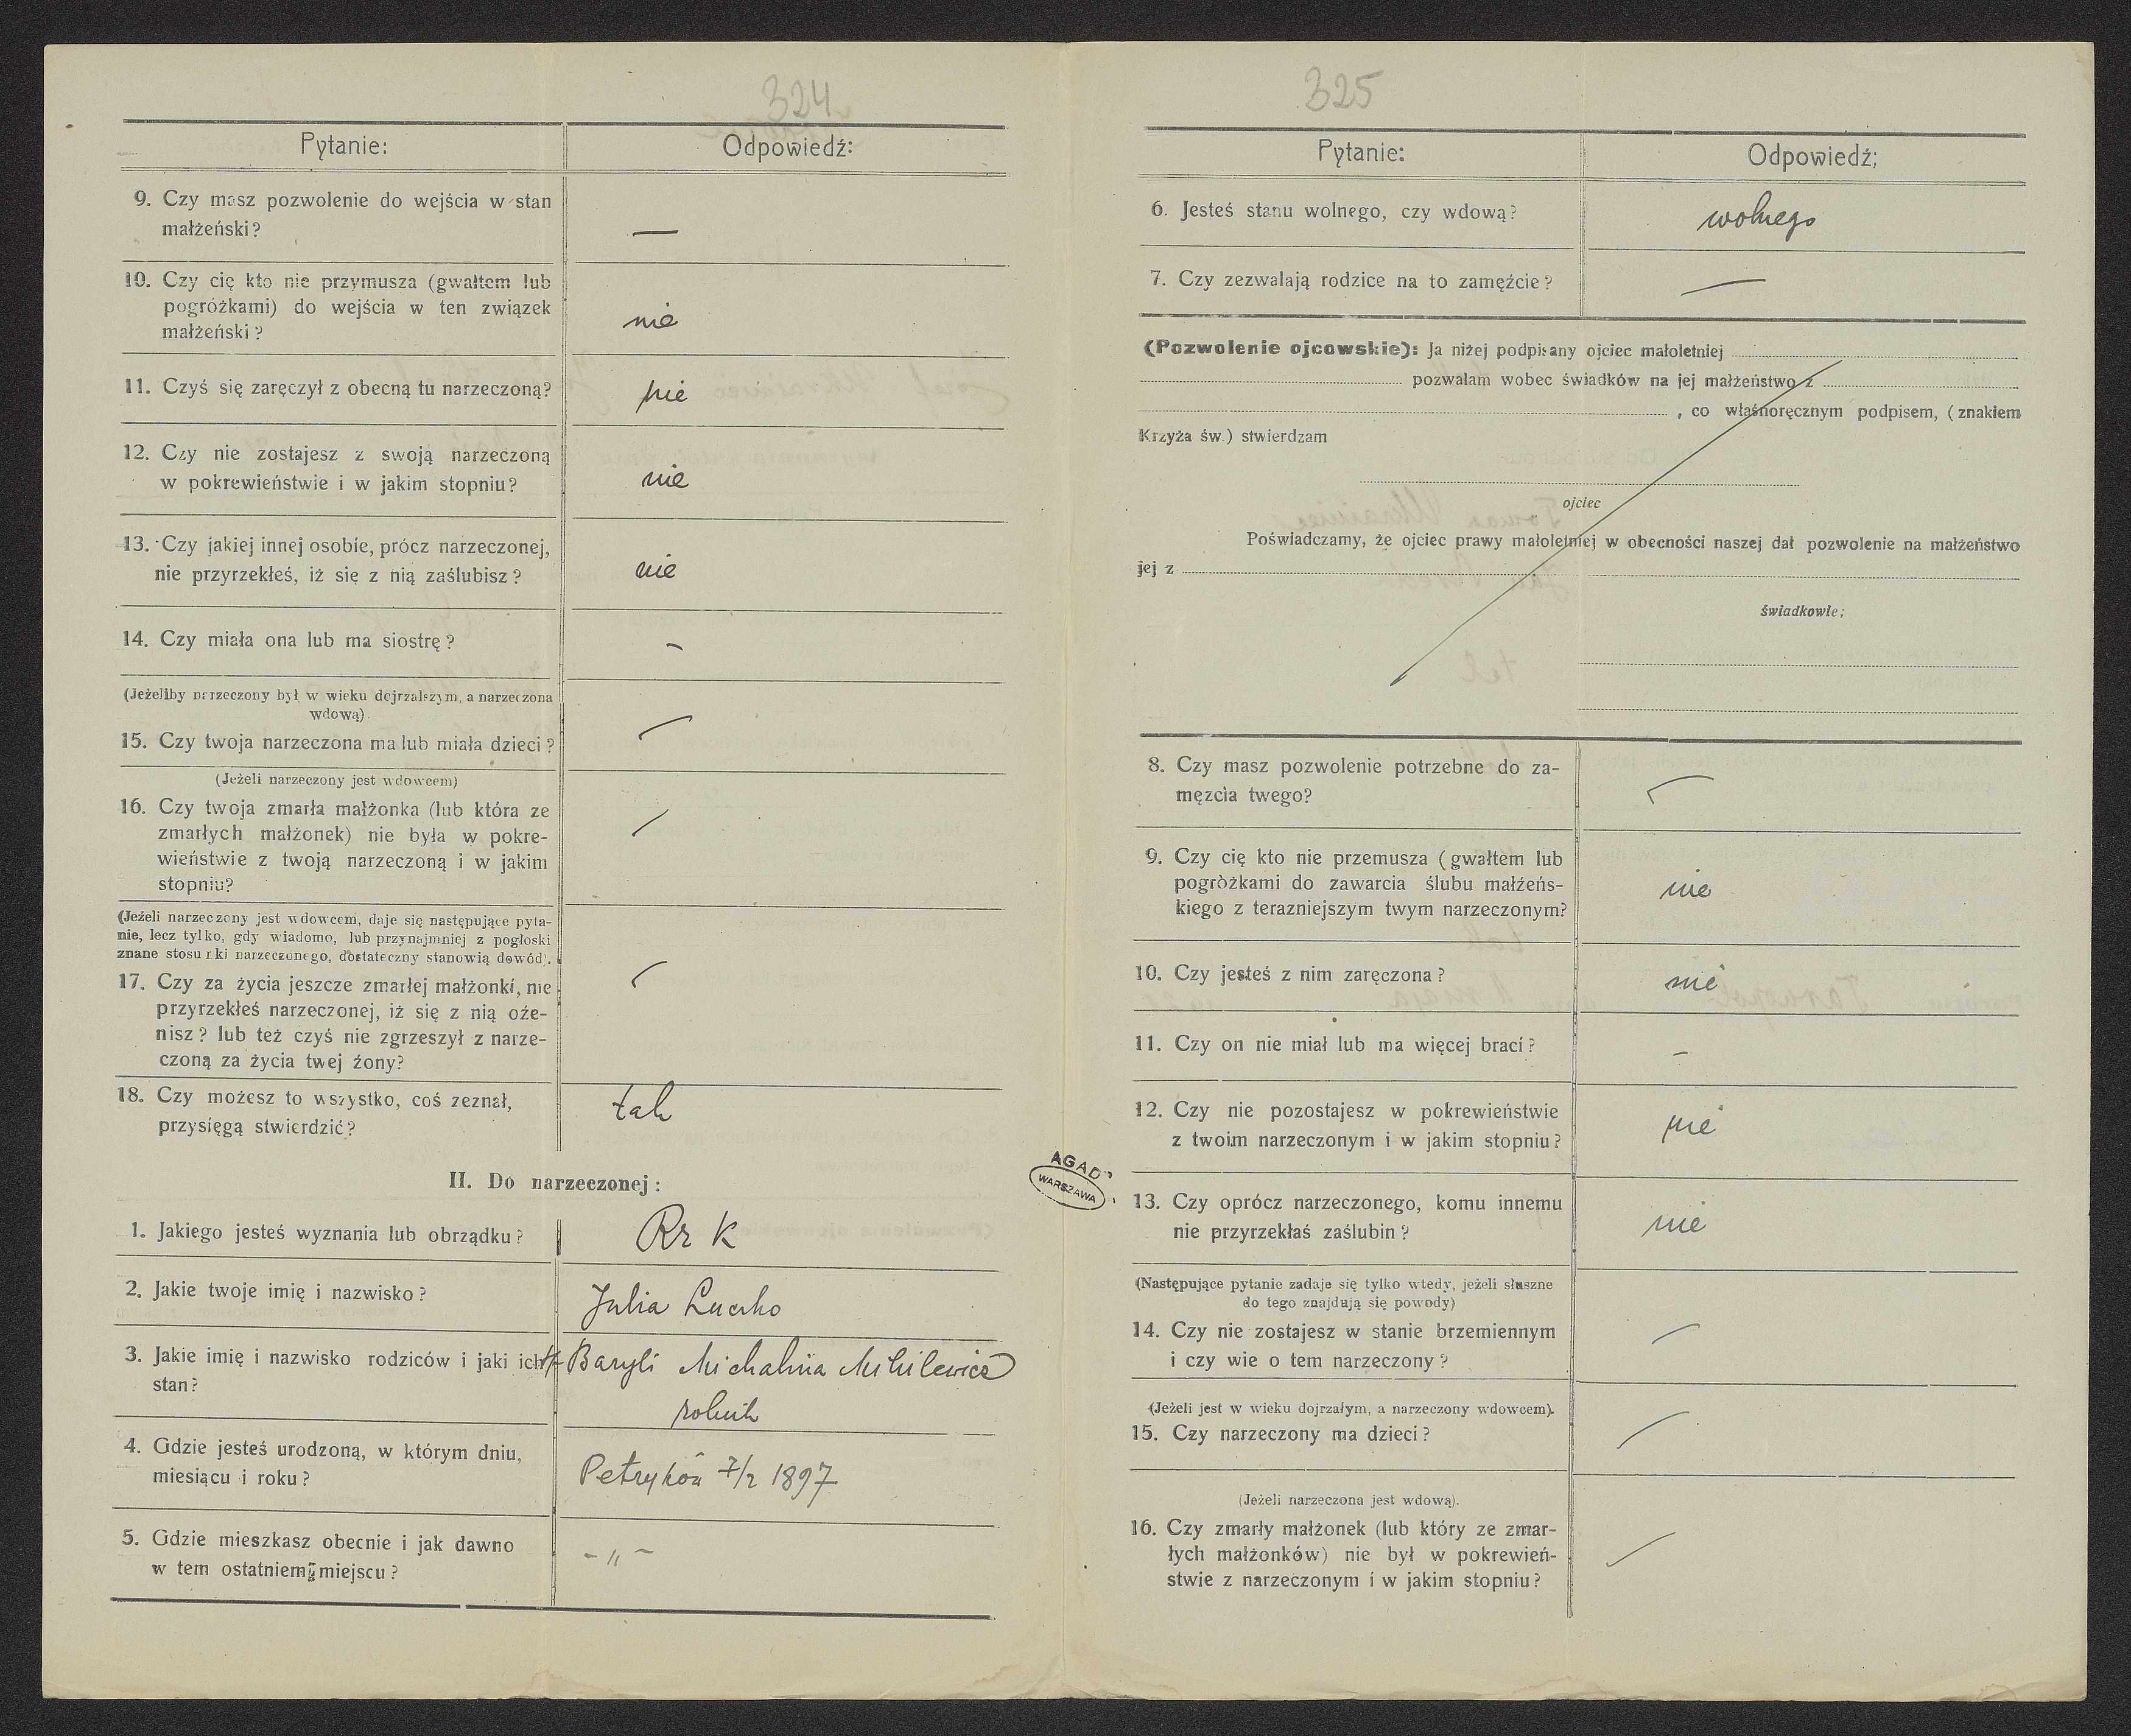 324
Pytanie: Odpowiedź:
9. Czy masz pozwolenie do wejścia w stan
małżeński? —
10. Czy cię kto nie przymusza (gwałtem lub
pogróżkami) do wejścia w ten związek
małżeński? nie
11. Czyś się zaręczył z obecną tu narzeczoną? nie
12. Czy nie zostajesz z swoją narzeczoną
w pokrewieństwie i w jakim stopniu? nie
13. Czy jakiej innej osobie, prócz narzeczonej,
nie przyrzekłeś, iż się z nią zaślubisz? nie
14. Czy miała ona lub ma siostrę? –
(Jeżeliby narzeczony był w wieku dojrzalszym, a narzeczona
wdową)
15. Czy twoja narzeczona ma lub miała dzieci? —
(Jeżeli narzeczony jest wdowcem)
16. Czy twoja zmarła małżonka (lub która ze
zmarłych małżonek) nie była w pokre-
wieństwie z twoją narzeczoną i w jakim
stopniu? —
(Jeżeli narzeczony jest wdowcem, daje się następujące pyta-
nie, lecz tylko, gdy wiadomo, lub przynajmniej z pogłoski
znane stosunki narzeczonego, dostateczny stanowią dowód).
17. Czy za życia jeszcze zmarłej małżonki, nie
przyrzekłeś narzeczonej, iż się z nią oże-
nisz? lub też czyś nie zgrzeszył z narze-
czoną za życia twej żony? —
18. Czy możesz to wszystko, coś zeznał,
przysięgą stwierdzić? tak
II. Do narzeczonej:
1. Jakiego jesteś wyznania lub obrządku? Rz K
2. Jakie twoje imię i nazwisko? Julia
3. Jakie imię i nazwisko rodziców i jaki ich
stan? Baryli Michalina
rolnik
4. Gdzie jesteś urodzoną, w którym dniu,
miesiącu i roku? Petryków 7/2 1897
5. Gdzie mieszkasz obecnie i jak dawno
w tem ostatniem miejscu? - " -
AGAD
WARSZAWA
325
Pytanie: Odpowiedź;
6. Jesteś stanu wolnego, czy wdową? wolnego
7. Czy zezwalają rodzice na to zamęźcie? —
(Pozwolenie ojcowskie): Ja niżej podpisany ojciec małoletniej
pozwalam wobec świadków na jej małżeństwo z
, co własnoręcznym podpisem, (znakiem
Krzyża św.) stwierdzam
ojciec
Poświadczamy, że ojciec prawy małoletniej w obecności naszej dał pozwolenie na małżeństwo
jej z
świadkowie;
8. Czy masz pozwolenie potrzebne do za-
męzcia twego? —
9. Czy cię kto nie przemusza (gwałtem lub
pogróżkami do zawarcia ślubu małżeńs-
kiego z terazniejszym twym narzeczonym? nie
10. Czy jesteś z nim zaręczona? nie
11. Czy on nie miał lub ma więcej braci? –
12. Czy nie pozostajesz w pokrewieństwie
z twoim narzeczonym i w jakim stopniu? nie
13. Czy oprócz narzeczonego, komu innemu
nie przyrzekłaś zaślubin? nie
(Następujące pytanie zadaje się tylko wtedy, jeżeli słuszne
do tego znajdują się powody)
14. Czy nie zostajesz w stanie brzemiennym
i czy wie o tem narzeczony? —
(Jeżeli jest w wieku dojrzałym, a narzeczony wdowcem).
15. Czy narzeczony ma dzieci? —
(Jeżeli narzeczona jest wdową).
16. Czy zmarły małżonek (lub który ze zmar-
łych małżonków) nie był w pokrewień-
stwie z narzeczonym i w jakim stopniu? —